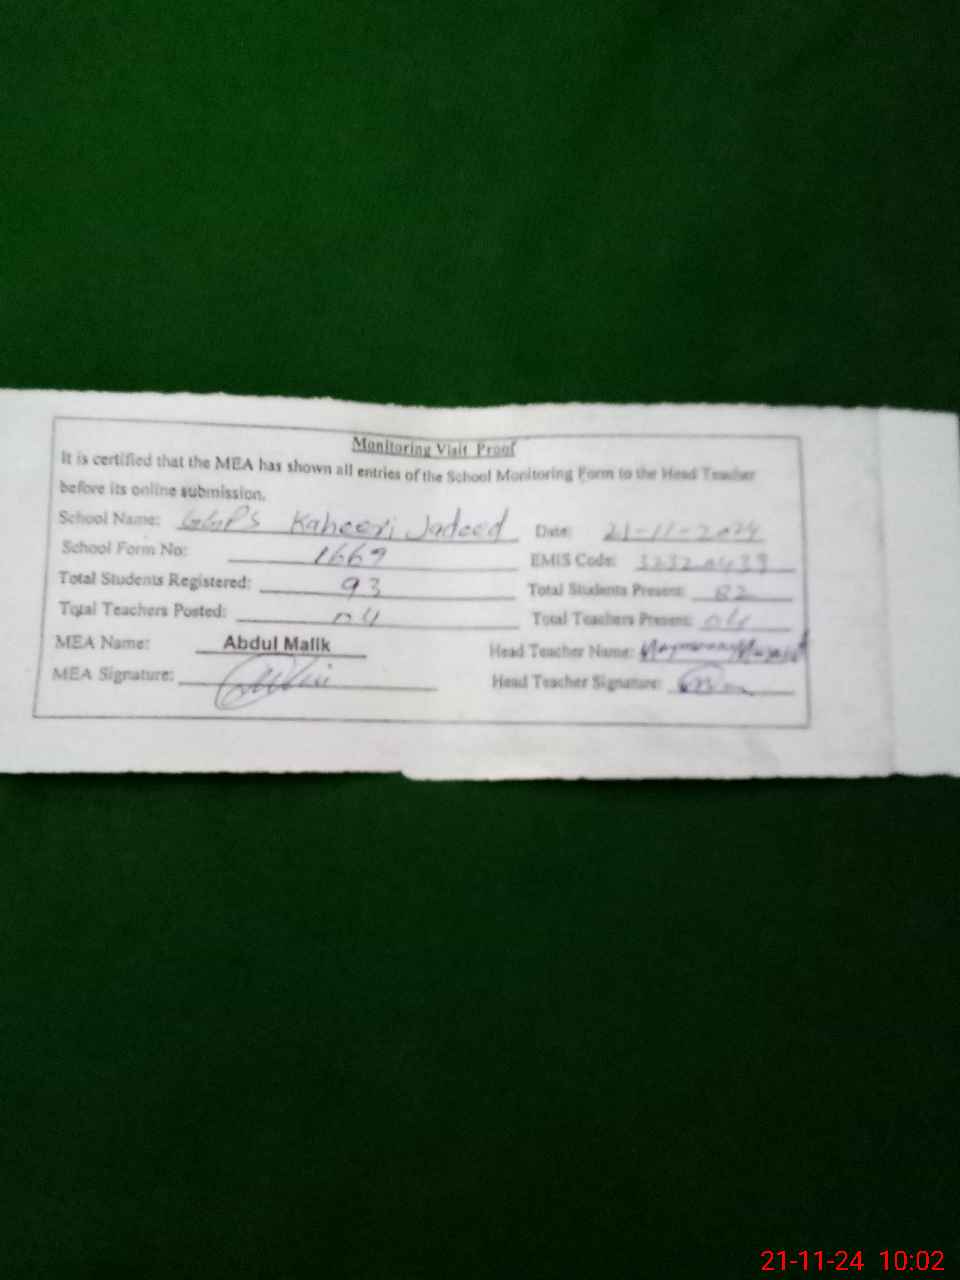 Monitoring Visit Proof
It is certified that the MEA has shown all entries of the School Monitoring Form to the Head Teacher
before its online submission.
School Name: GGPS Kaheeri Jadeed Date: 21-11-2024
School Form No: 1669 EMIS Code:
Total Students Registered: 93 Total Students Present: 82
Total Teachers Posted: 04 Total Teachers Present: 04
MEA Name: Abdul Malik Head Teacher Name:
MEA Signature: Head Teacher Signature:
21-11-24 10:02